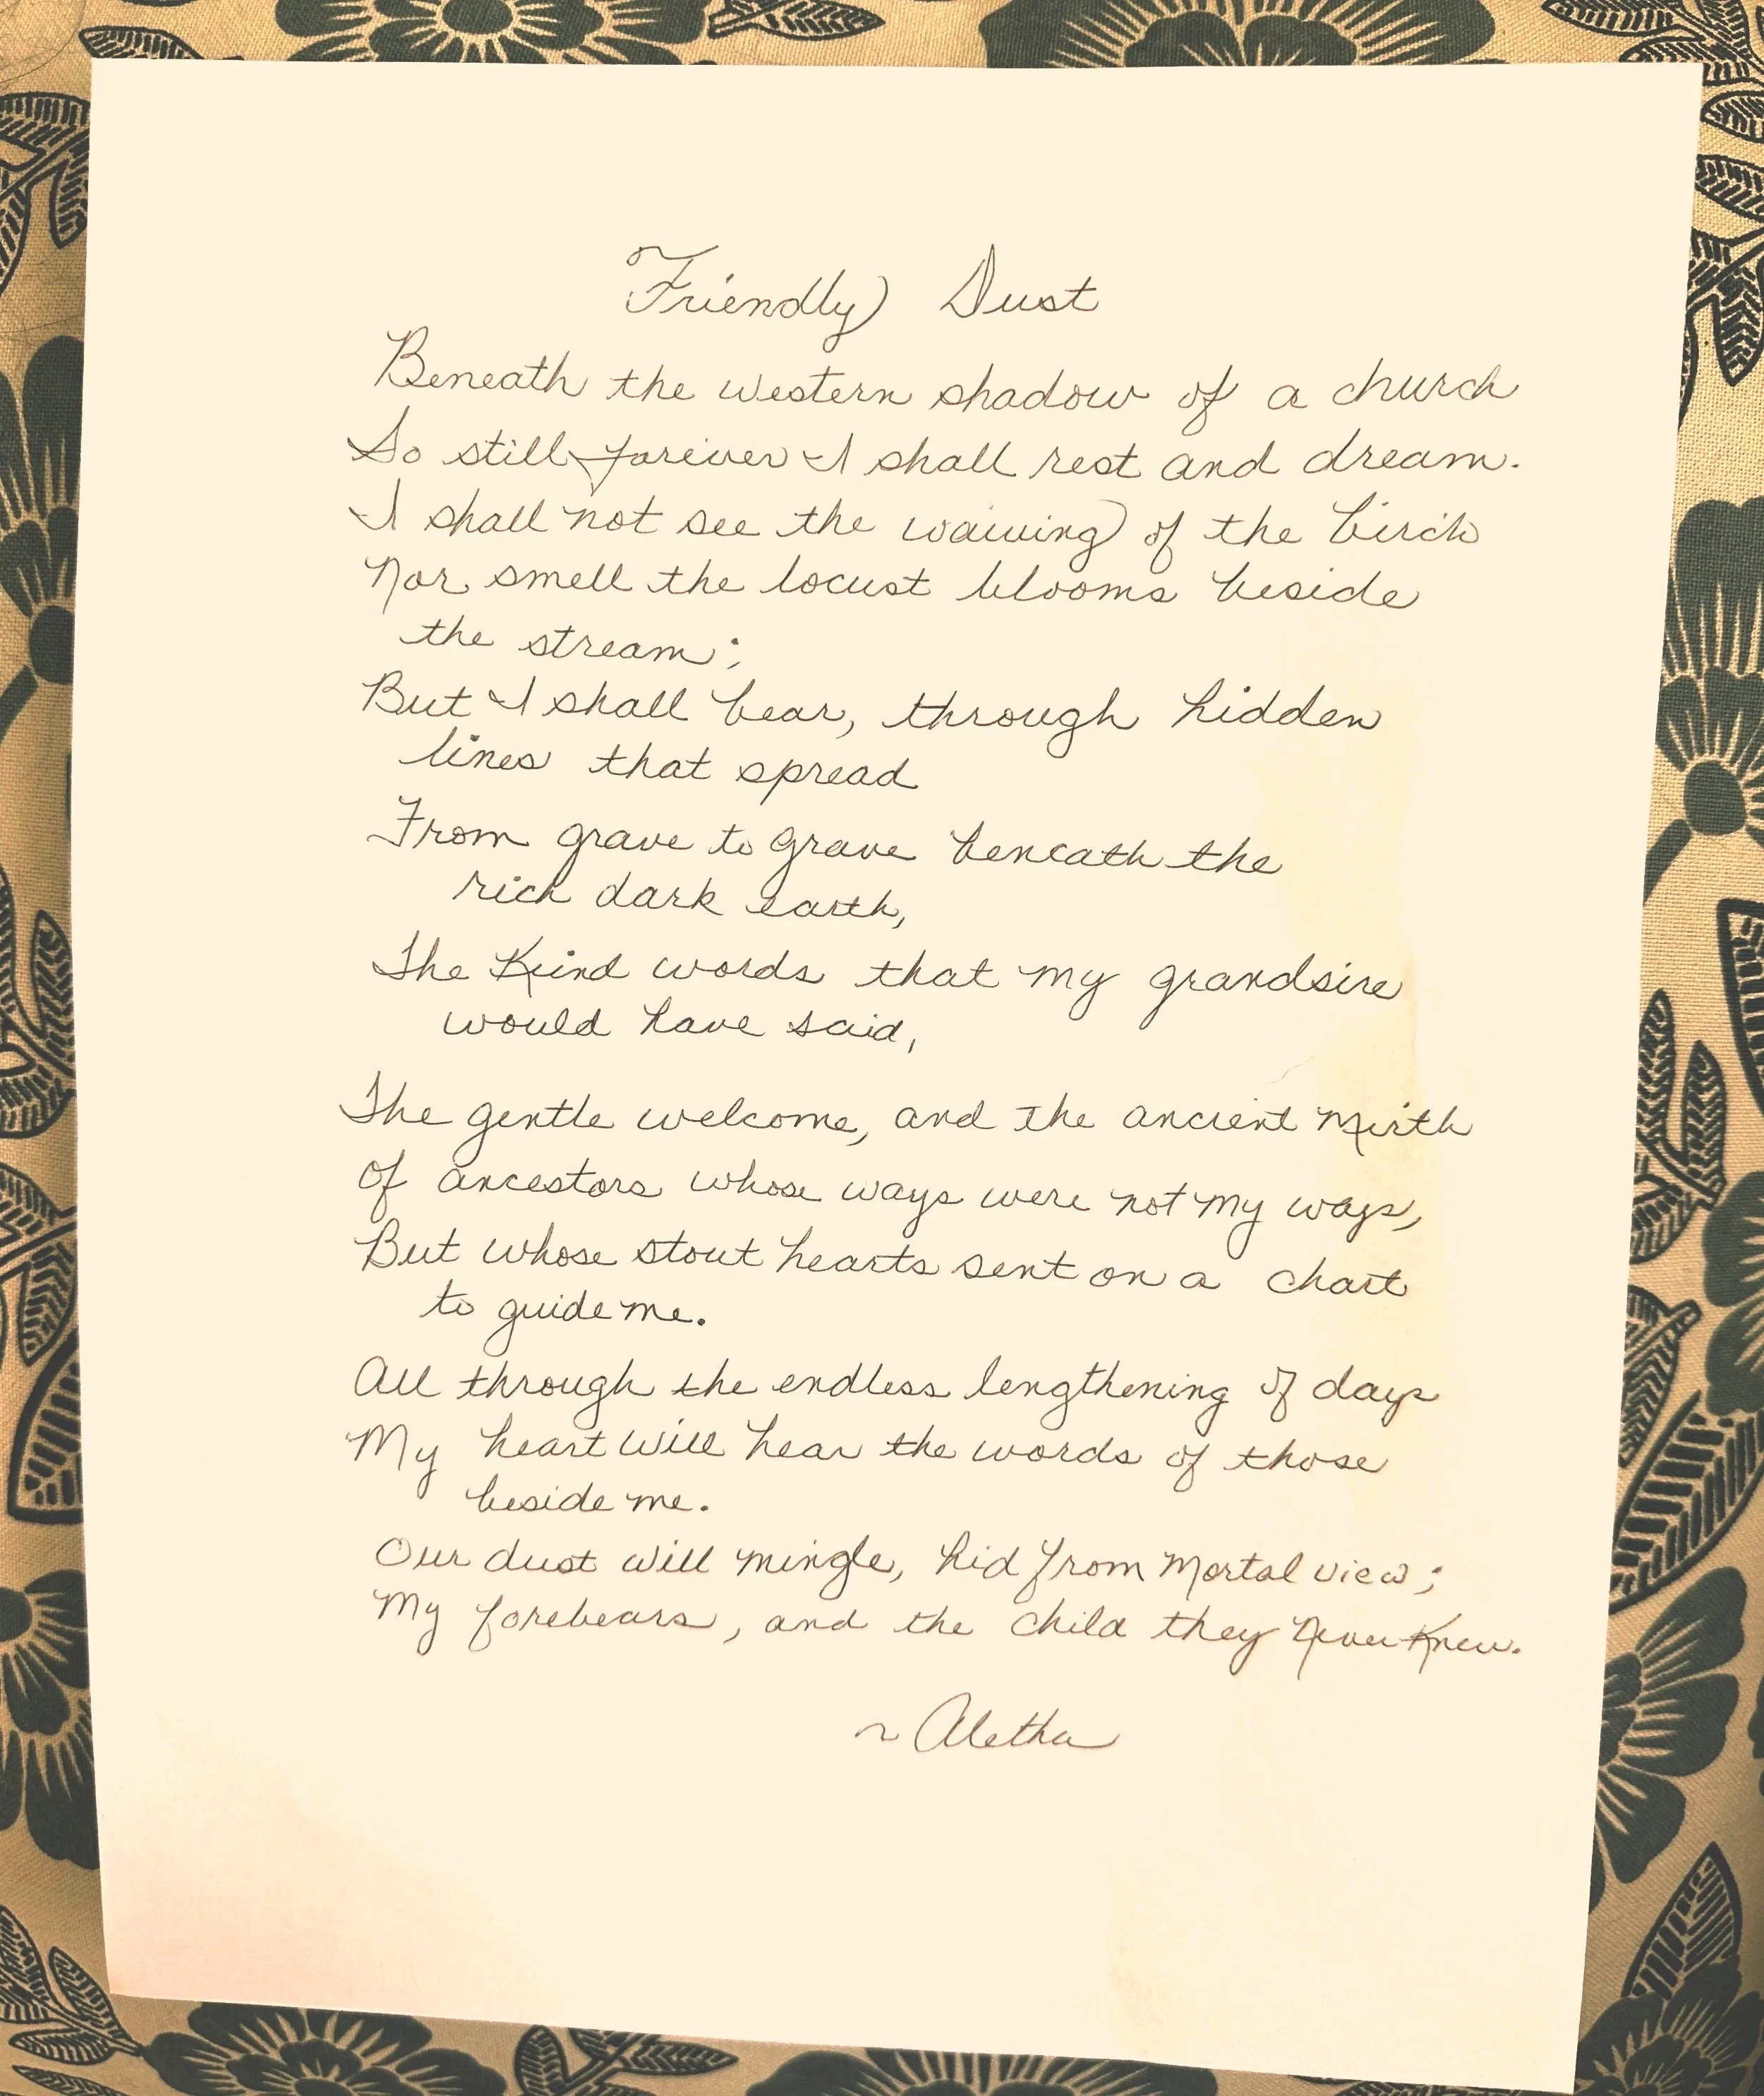 Friendly Dust
Beneath the western shadow of a church
So still forever I shall rest and dream.
I shall not see the waiving of the birch
Nor smell the locust blooms beside
the stream;
But I shall hear, through hidden
lines that spread
From grave to grave beneath the
rich dark earth,
The kind words that my grandsire
would have said,
The gentle welcome, and the ancient mirth
of ancestors whose ways were not my ways,
But whose stout hearts sent on a chart
to guide me.
All through the endless lengthening of days
My heart will hear the words of those
beside me.
Our dust will mingle, hid from mortal view;
My forebears, and the child they never knew.
~ Aletha